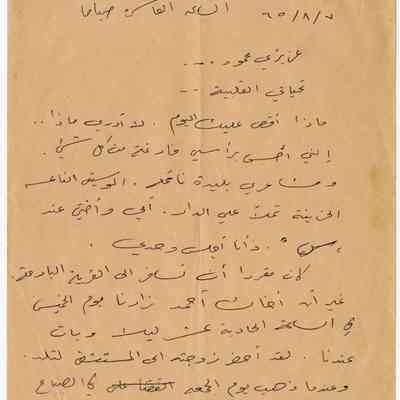 الساعة العاشرة صباحا ٦٥/٨/٧
عزيزي محمود . . .
تحياتي القلبية --
ماذا أقص عليك اليوم . لا أدري ماذا . .
إنني أحس برأسي فارغة من كل شيء .
ومشاعري بليدة ناعمة . الموسيقى الناعسة
الحزينة تملأ علي الدار . أبي وأختي عند
. وأنا أجلس وحدي .
كان مقررا أن نسافر الى القرية البارحة .
غير أن أخاك أحمد زارنا يوم الخميس
في الساعة الحادية عشر ليلا وبات
عندنا . لقد أحضر زوجته الى المستشفى لتلد .
وعندما ذهب يوم الجمعة في الصباح